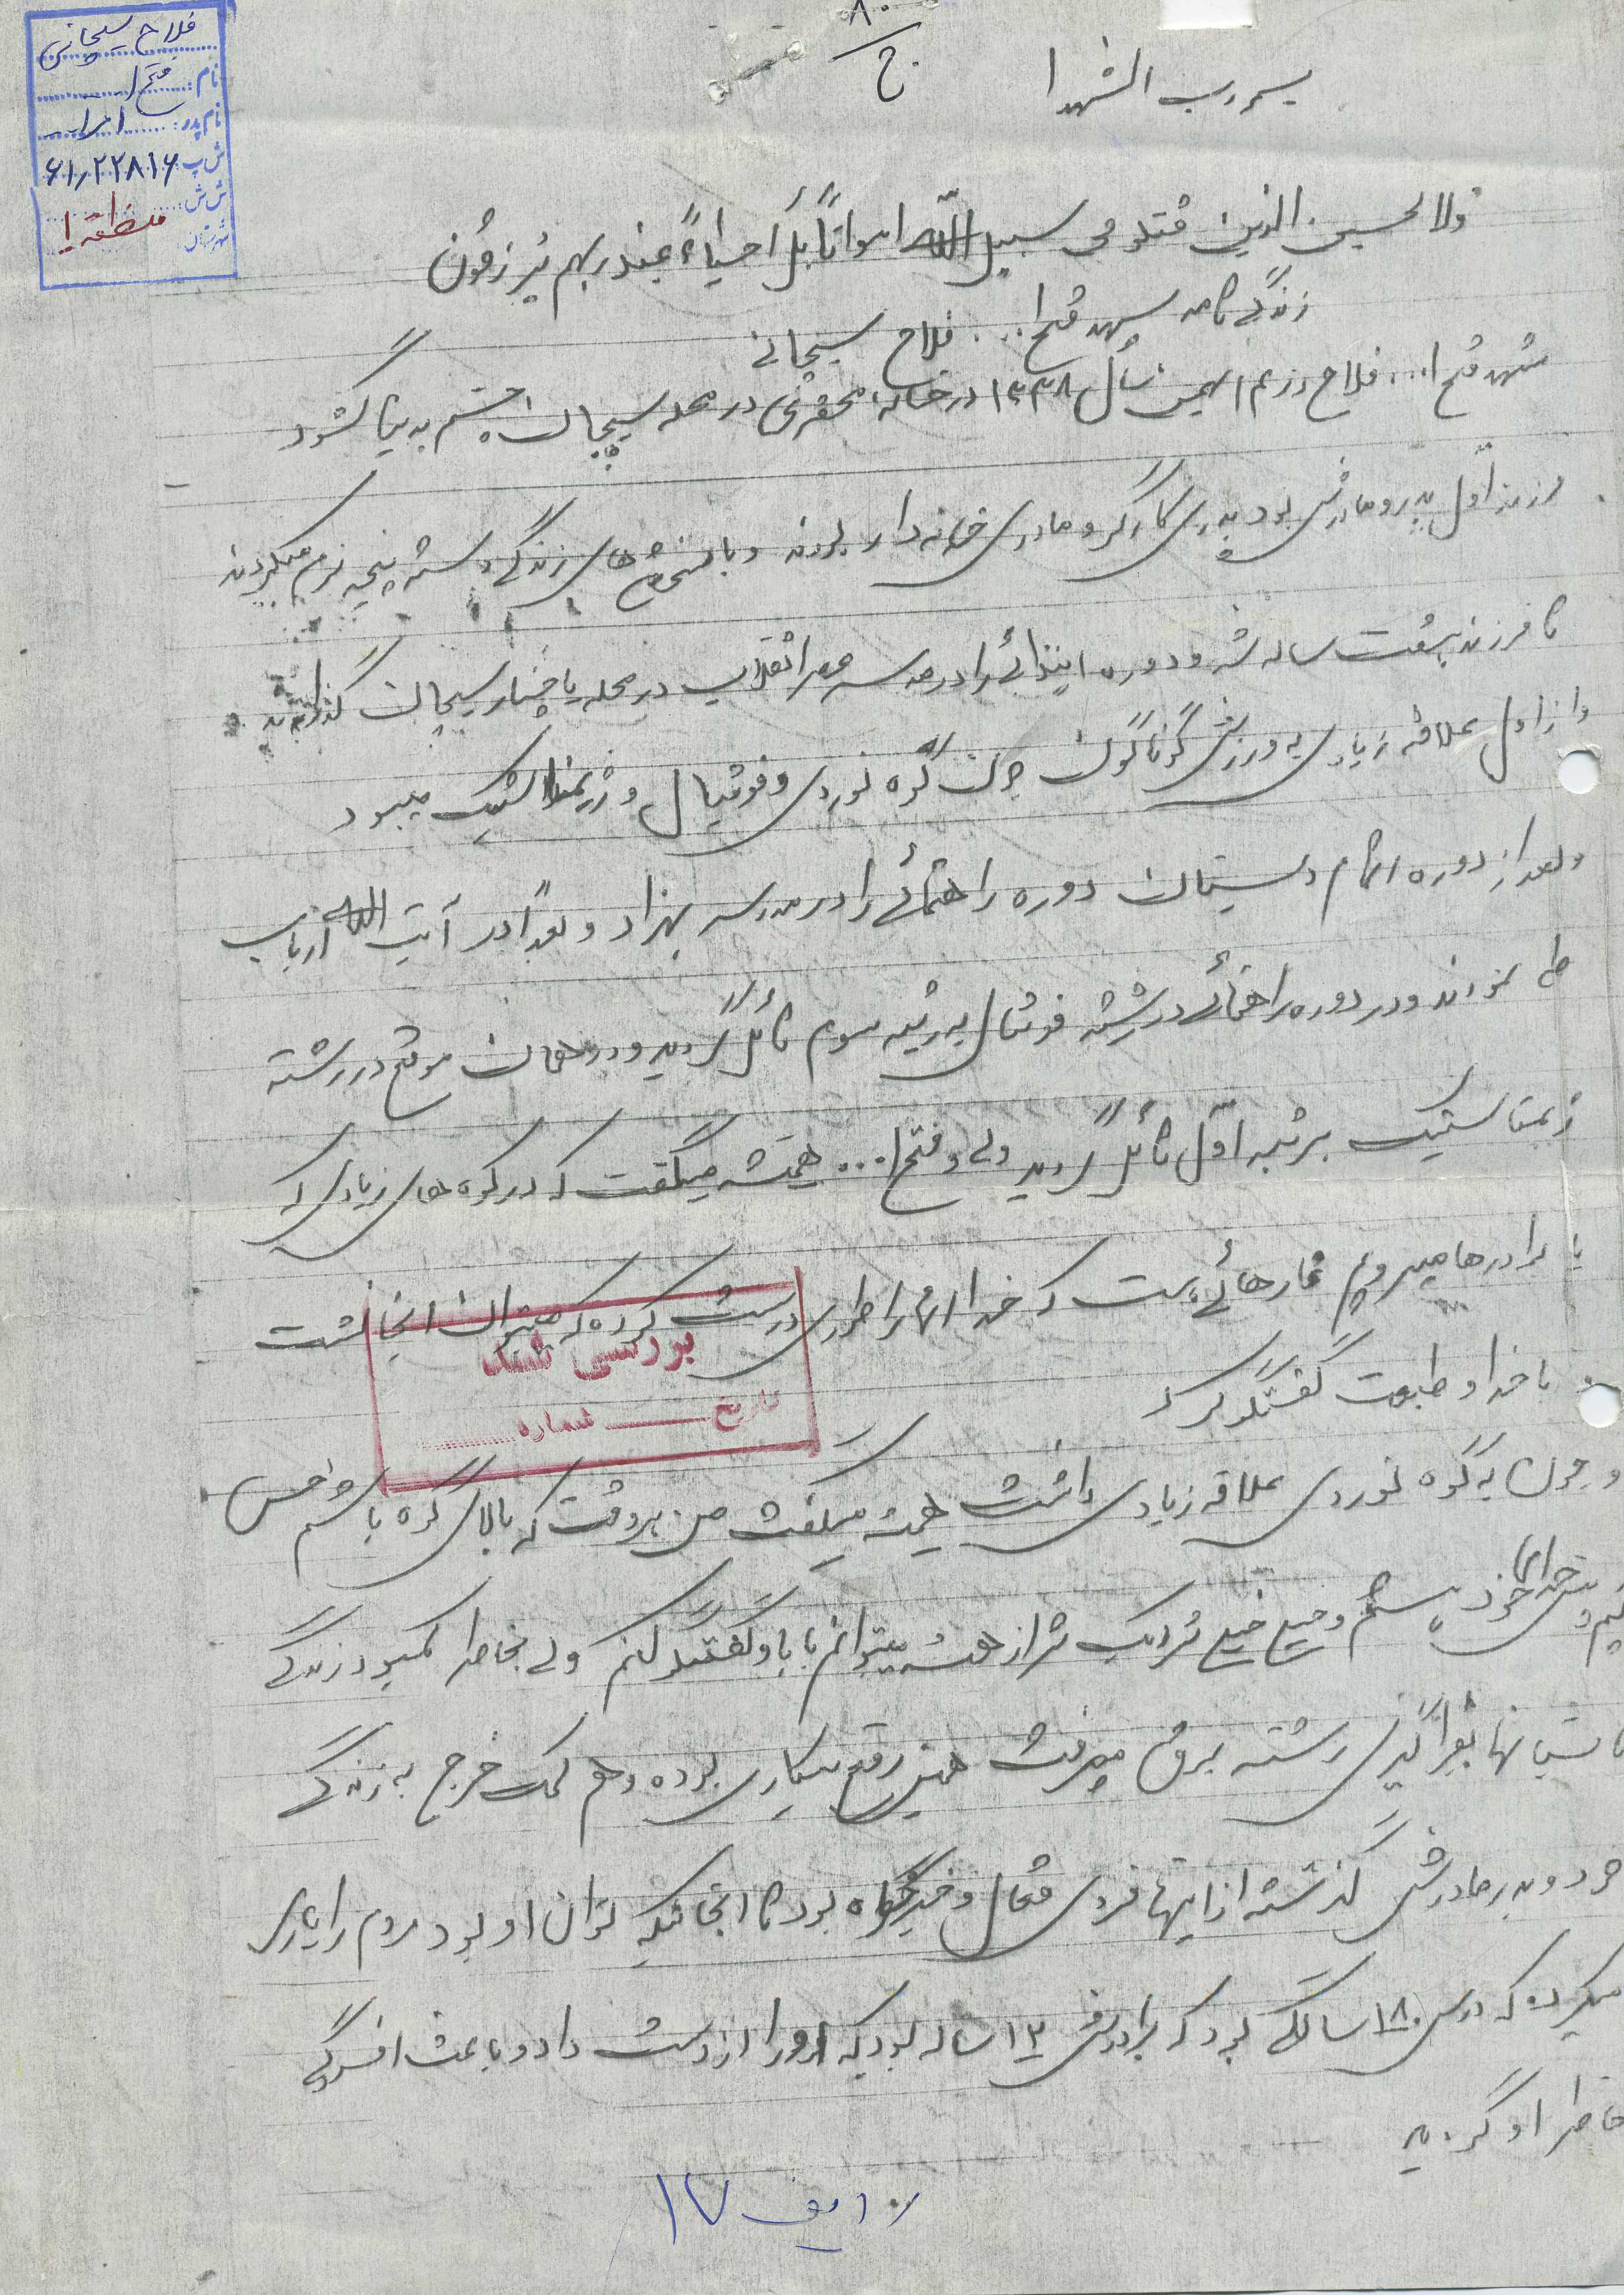 فلاح سیچانی
نام: فتح ا...
نام پدر:
ش پ ۶۱٫۲۲۸۱۶
ش ش:
شهرستان:
منطقه ۱
۸۰
ج
بسم رب الشهدا
ولا تحسبن الذین قتلو فی سبیل الله امواتاً بل أحیاءً عند ربهم یُرزقون
زندگی نامه شهید فتح ا... فلاح سیچانی
شهید فتح ا... فلاح در بهمن سال ۱۳۳۸ در خانه محقری در محله سیچان چشم بدنیا گشود
فرزند اول پدر و مادرش بود پدرش کارگر و مادرش خانه دار بودند و با رنج های زندگی دسته پنجه نرم میکردند
تا فرزند هفت ساله شد و دوره ابتدائی را در مدرسه عصر انقلاب در محله پاچنار سیچان گذراندند
و از اول علاقه زیادی به ورزش گوناگون چون کوه نوردی و فوتبال و ژیمناستیک میبود
و بعد از دوره اتمام دبستان دوره راهنمائی را در مدرسه بهزاد و بعداً در آیت الله ارباب
طی نمودند و در دوره راهنمائی در رشته فوتبال به رتبه سوم نائل گردید و در همان موقع در رشته
ژیمناستیک برتبه اول نائل گردید ولی فتح ا... همیشه میگفت که در کوه های زیادی که
با برادرها میرویم غارهائی است که خدا آنها را طوری درست کرده که میتوان آنجا نشست
با خدا و طبیعت گفتگو کرد
بررسی شد
تاریخ ــــ شماره ......
و چون به کوه نوردی علاقه زیادی داشت همیشه میگفت من هر وقت که بالای کوه باشم حس
میکنم پیش خدای خود هستم و خیلی خیلی نزدیک تر از همیشه میتوانم با او گفتگو کنم ولی بخاطر کمبود زندگی
تابستانها بفراگیری رشته برق میرفت همین رفع بیکاری بوده و هم کمک خرج به زندگی
خود و پدر مادرش گذشته از اینها فردی فعال و خیرخواه بود تا آنجائیکه توان او بود مردم را یاری
میکرد که در سن ۱۸ سالگی بود که برادرش ۱۳ ساله بود که او را از دست داد و باعث افسردگی
خاطر او گردید
۱۷